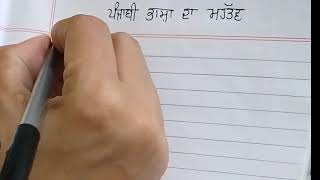 ਪੰਜਾਬੀ ਭਾਸ਼ਾ ਦਾ ਮਹੱਤਵ